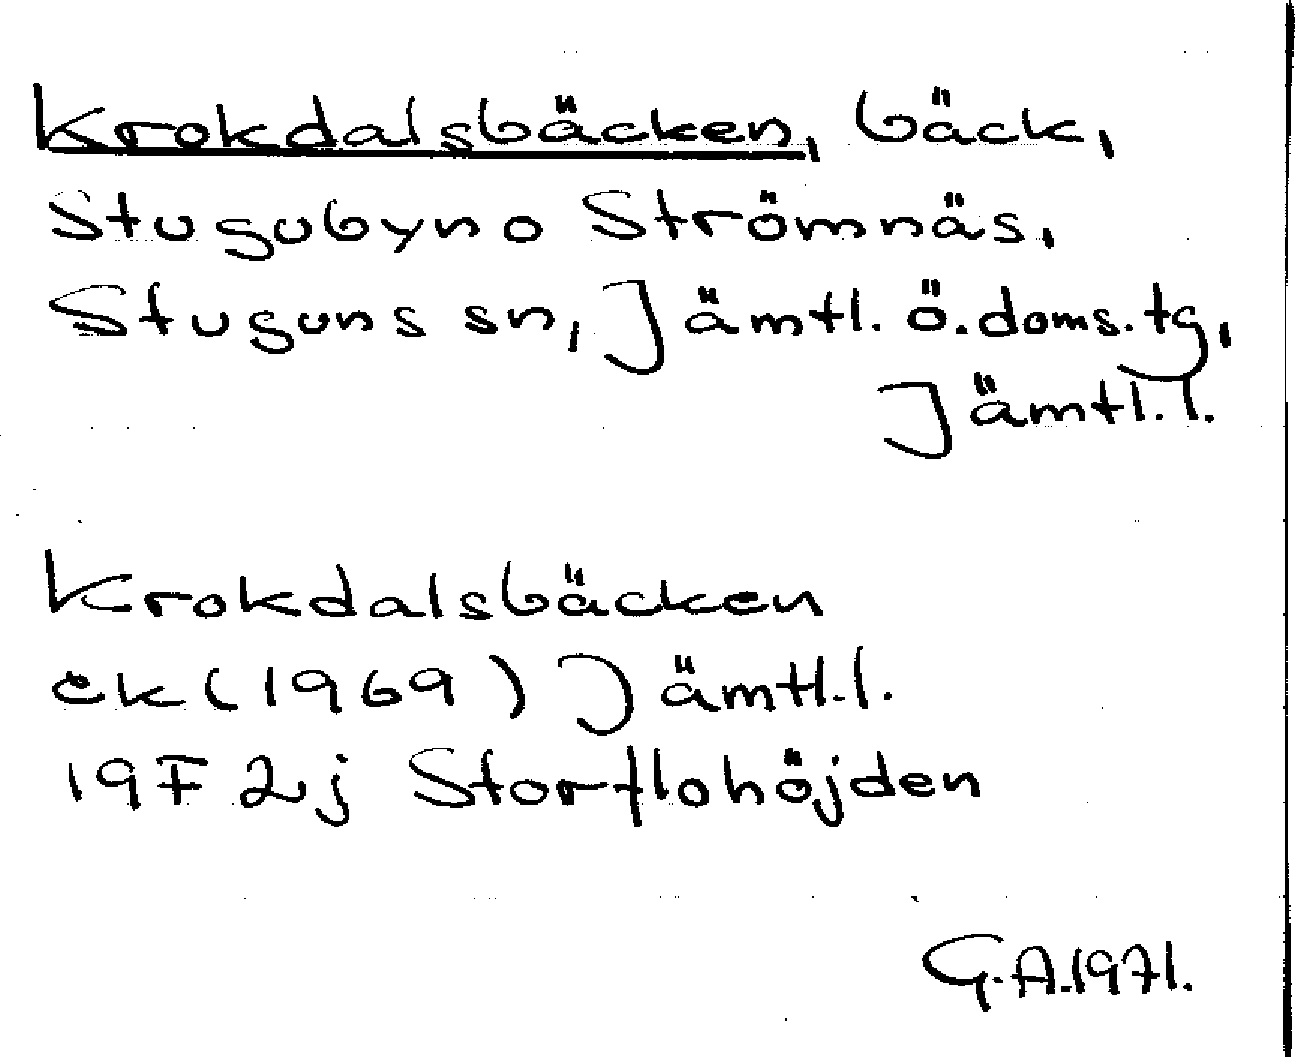 Krokdalsbäcken, bäck,
Stugubyn o Strömnäs,
Stuguns sn, Jämtl. ö. doms. tg,
Jämtl. l.
Krokdalsbäcken
ek (1969) Jämtl. l.
19F 2j Storflohöjden
G. A. 1971.